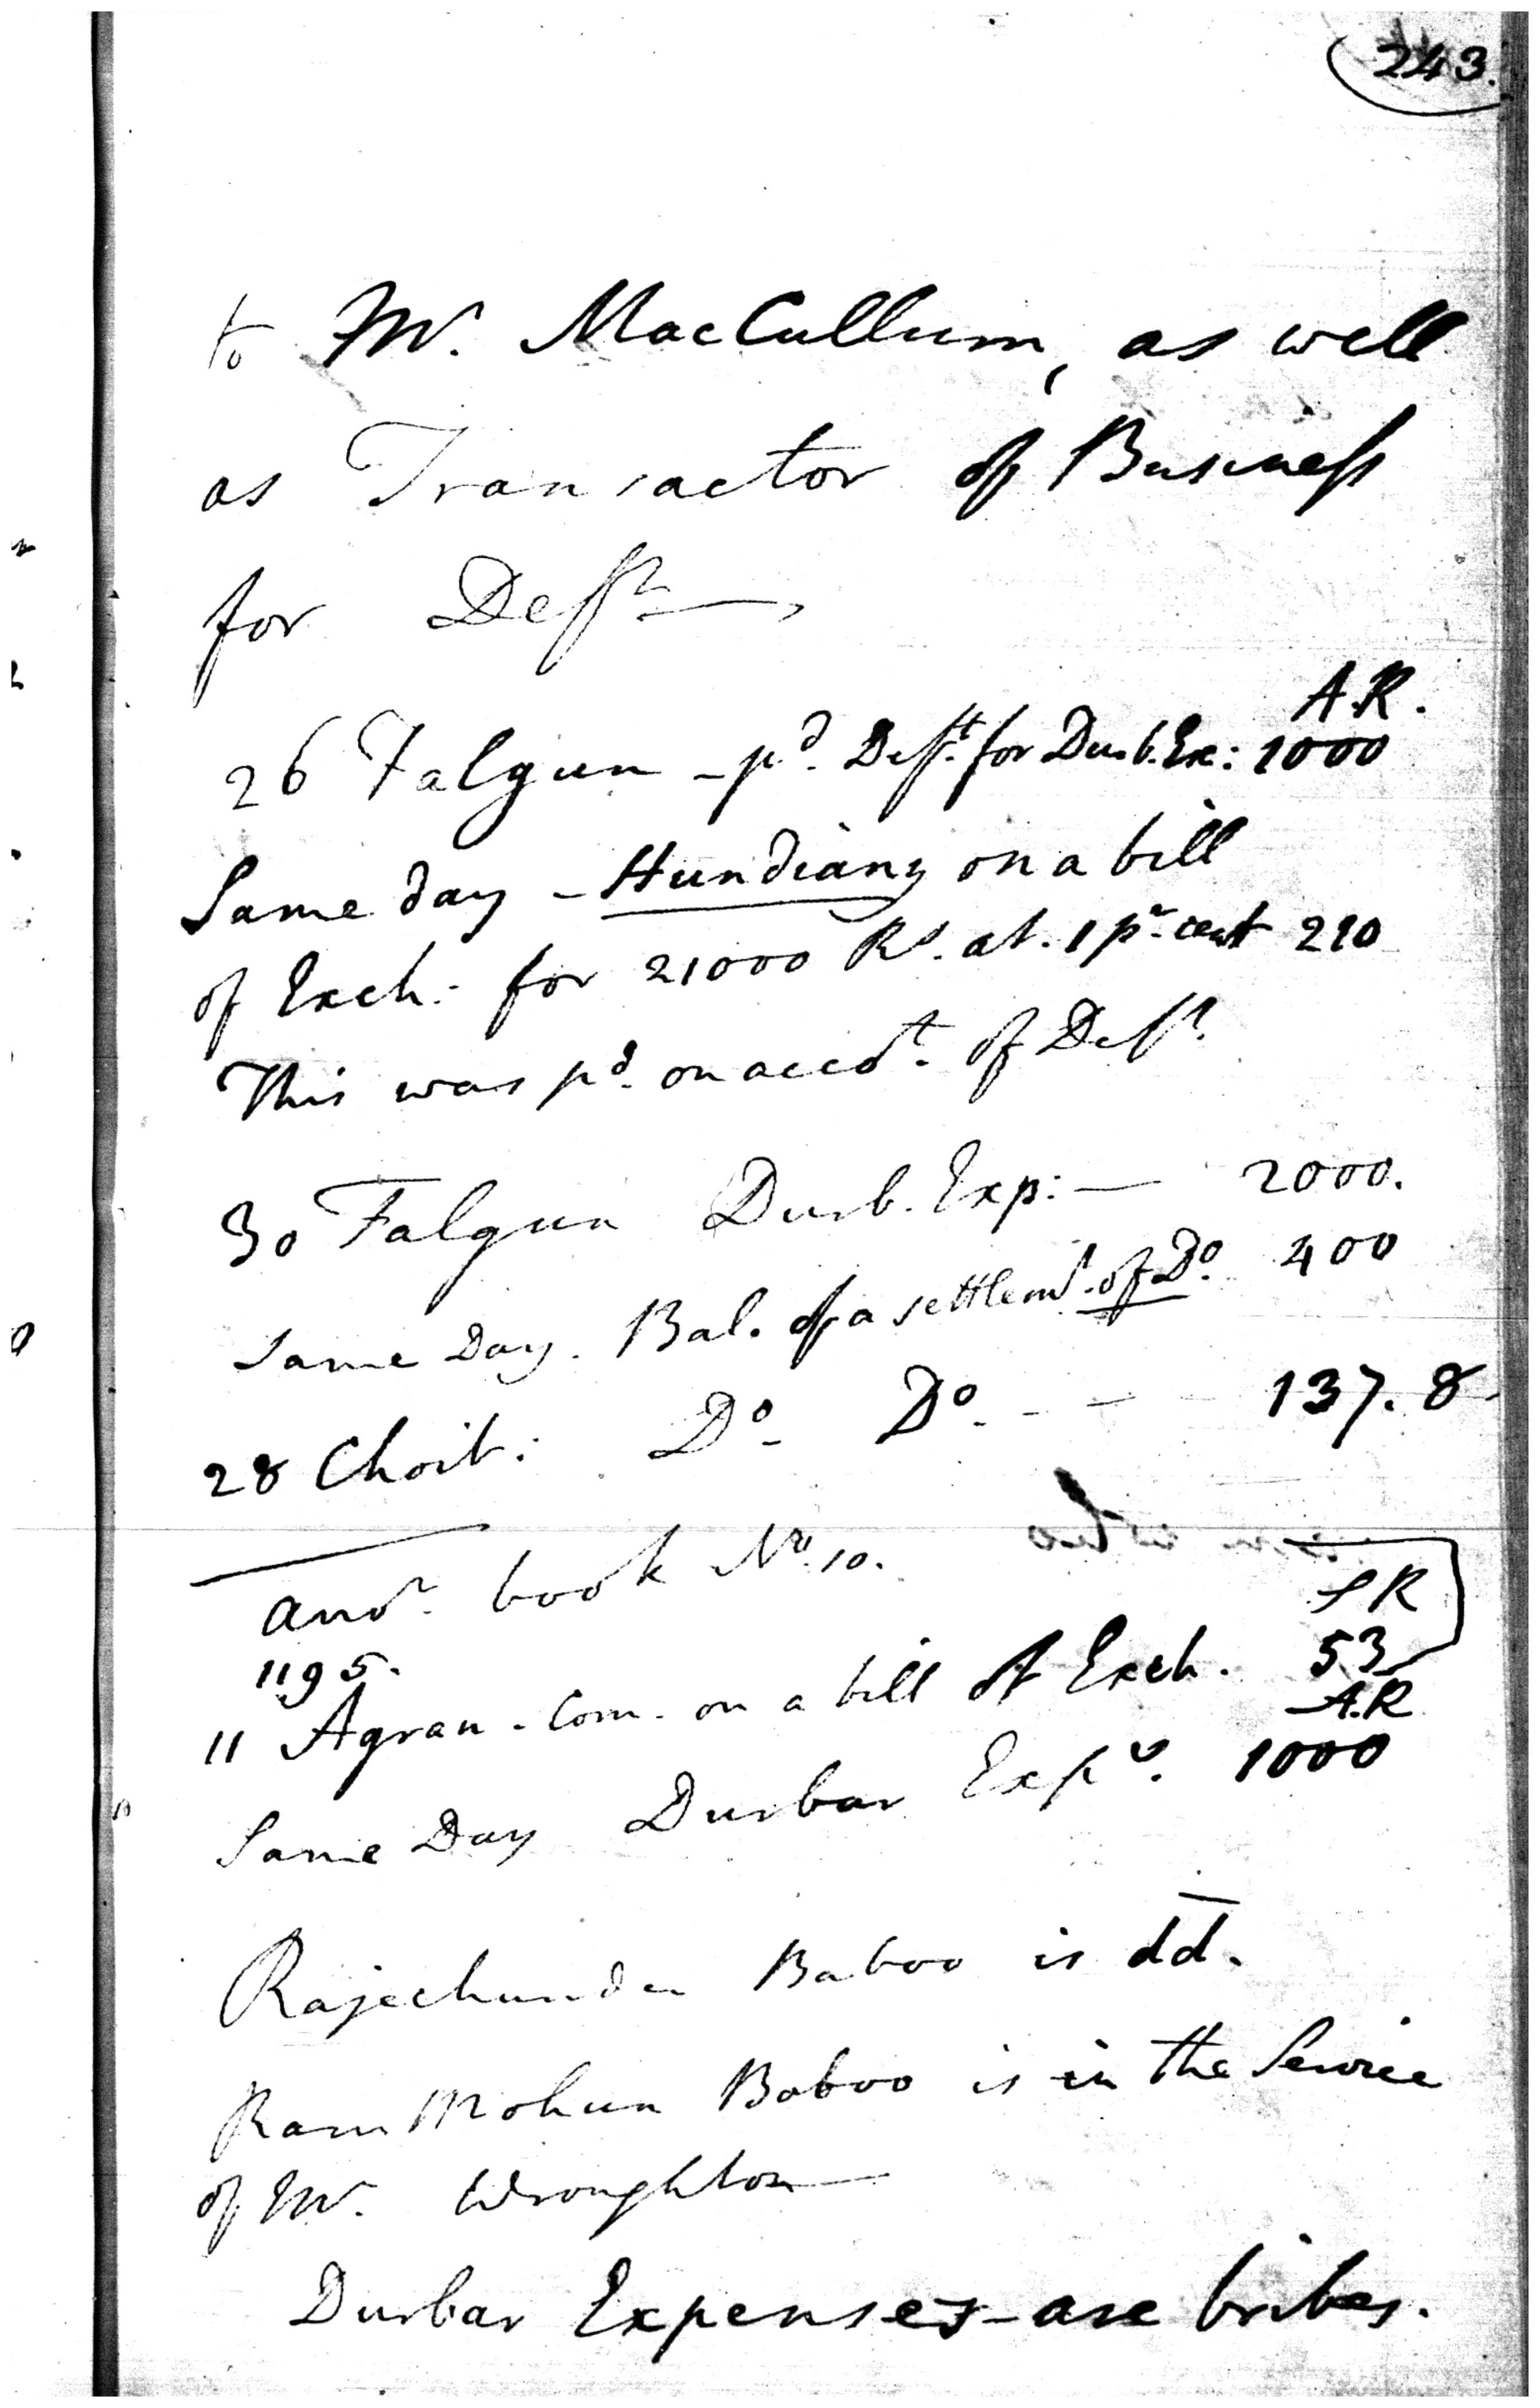 243.
to Mr. MacCullum, as well
as Transactor of Business
for Deft
A.R.
26 Falgun - pd. Deft. for Durb. Ex: 1000
Same day - Hundiany on a bill
of Exch: for 21000 Rs. at. 1 pr. cent 210
This was pd. on accot. of Deft.
30 Falgun Durb. Exp: — 2000.
Same Day. Bal. of a settlemt. of Do. 400
28 Choit: Do. Do. - - 137. 8
anor. book No. 10.
SR
1195.
11 Agran. Com. on a bill of Exch. 53
A.R
Same Day Durbar Exps. 1000
Rajechunder Baboo is dd.
Ram Mohun Baboo is in the Service
of Mr. Wroughton
Durbar Expenses are bribes.